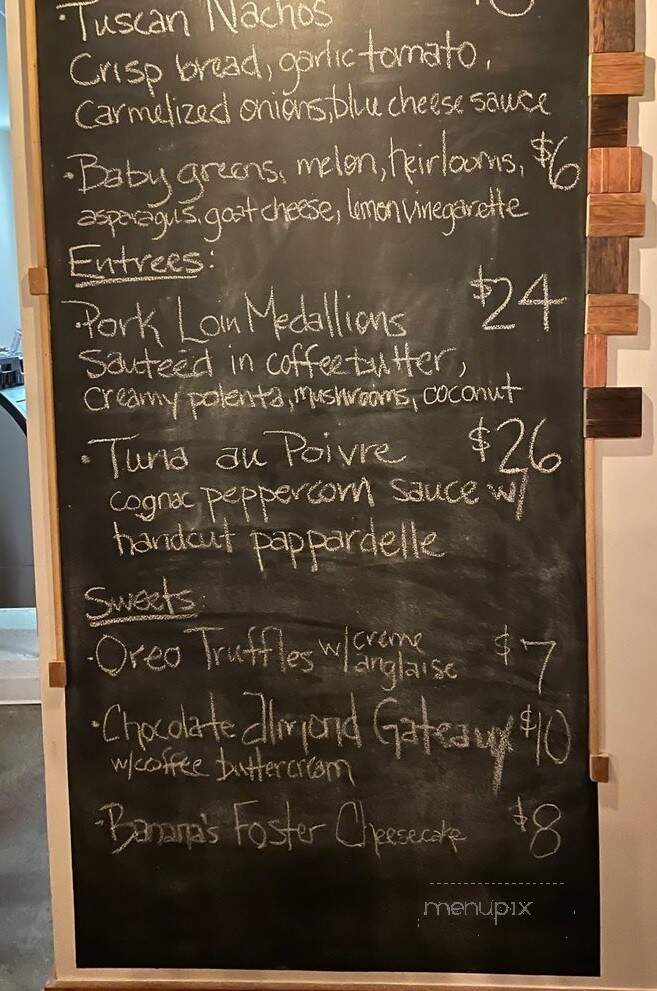 ·Tuscan Nachos
Crisp bread, garlic tomato,
Carmelized onions, blue cheese sauce
·Baby greens, melon, heirlooms, $6
asparagus, goat cheese, lemon vinegarette
Entrees:
·Pork Loin Medallions $24
Sauteed in coffee butter,
creamy polenta, mushrooms, coconut
·Tuna au Poivre $26
cognac peppercorn sauce w/
handcut pappardelle
Sweets
·Oreo Truffles w/ creme anglaise $7
·Chocolate Almond Gateaux $10
w/coffee buttercream
·Banana's Foster Cheesecake $8
menupix